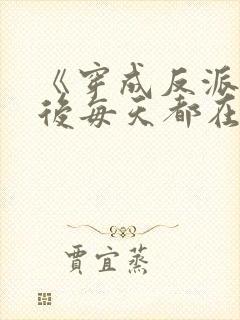 《穿成反派
後每天都在
賈宜蒸